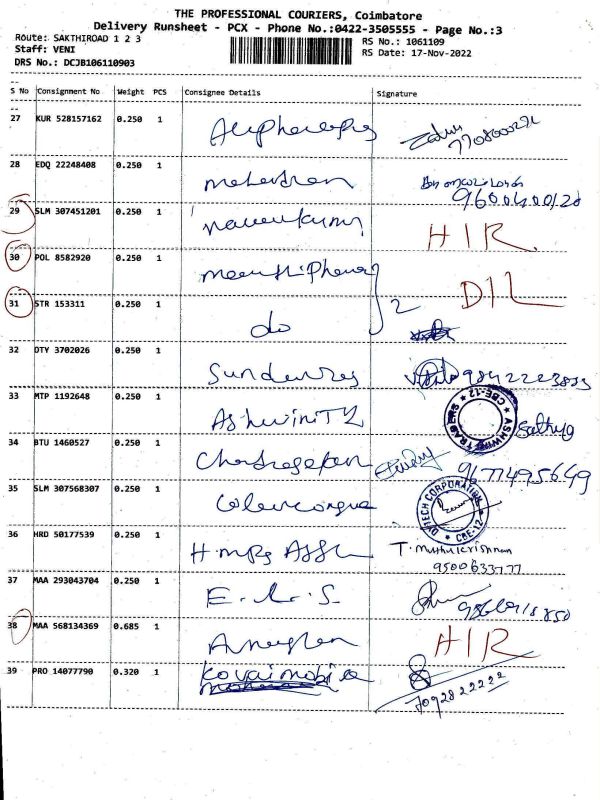 THE PROFESSIONAL COURIERS, Coimbatore
Delivery Runsheet - PCX - Phone No.:0422-3505555 - Page No.:3
Route: SAKTHIROAD 1 2 3
RS No.: 1061109
Staff: VENI
RS Date: 17-Nov-2022
DRS No.: DCJB106110903
S No Consignment No Weight PCS Consignee Details Signature
27 KUR 528157162 0.250 1
28 EDQ 22248408 0.250 1
29 SLM 307451201 0.250 1 Naveenkumar HIR
30 POL 8582920 0.250 1 DIL
31 STR 153311 0.250 1 do 2
32 DTY 3702026 0.250 1
33 MTP 1192648 0.250 1 Ashwini ASHWINI TRADERS CBE-12 Sathya
34 BTU 1460527 0.250 1 Chandrasekaran 9677495649
35 SLM 307568307 0.250 1 CORPORATION CBE-12
36 HRD 50177539 0.250 1 T. Muthukrishnan
9500633777
37 MAA 293043704 0.250 1 E.L.S.
38 MAA 568134369 0.685 1 HIR
39 PRO 14077790 0.320 1 Kovai mobile
7092822222